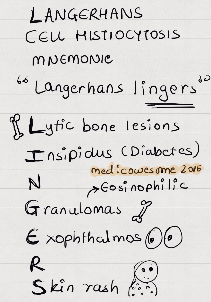 LANGERHANS
CELL HISTIOCYTOSIS
MNEMONIC
"Langerhans lingers"
Lytic bone lesions
Insipidus (Diabetes)
medicowesome 2016
N → Eosinophilic
Granulomas
Exophthalmos
R
Skin rash